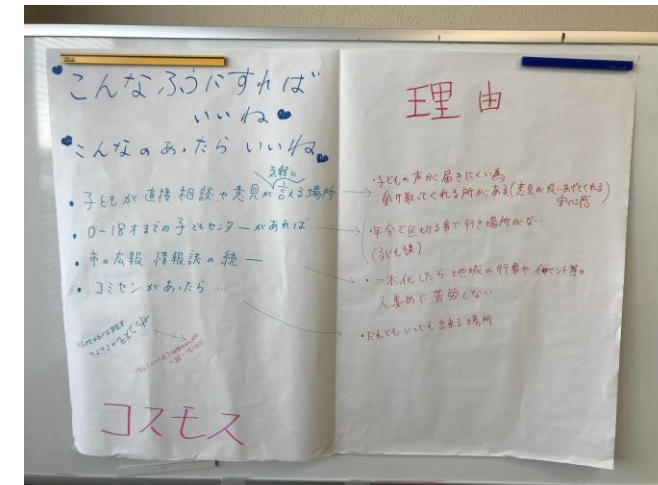 こんなふうにすれば
いいね
こんなのあったらいいね
気軽に
・子どもが直接相談や意見が言える場所
・0～18才までの子どもセンターがあれば
・市の広報 情報誌の統一
・コミセンがあったら…
コスモス
理由
・子どもの声が届きにくい為
受け取ってくれる所がある(意見が吸いあげてくれる
・年令で区切る事で行き場所がない
(子ども課)
・一本化したら地域の行事やイベント等の
人集めに苦労しない
・だれでもいつでも出来る場所